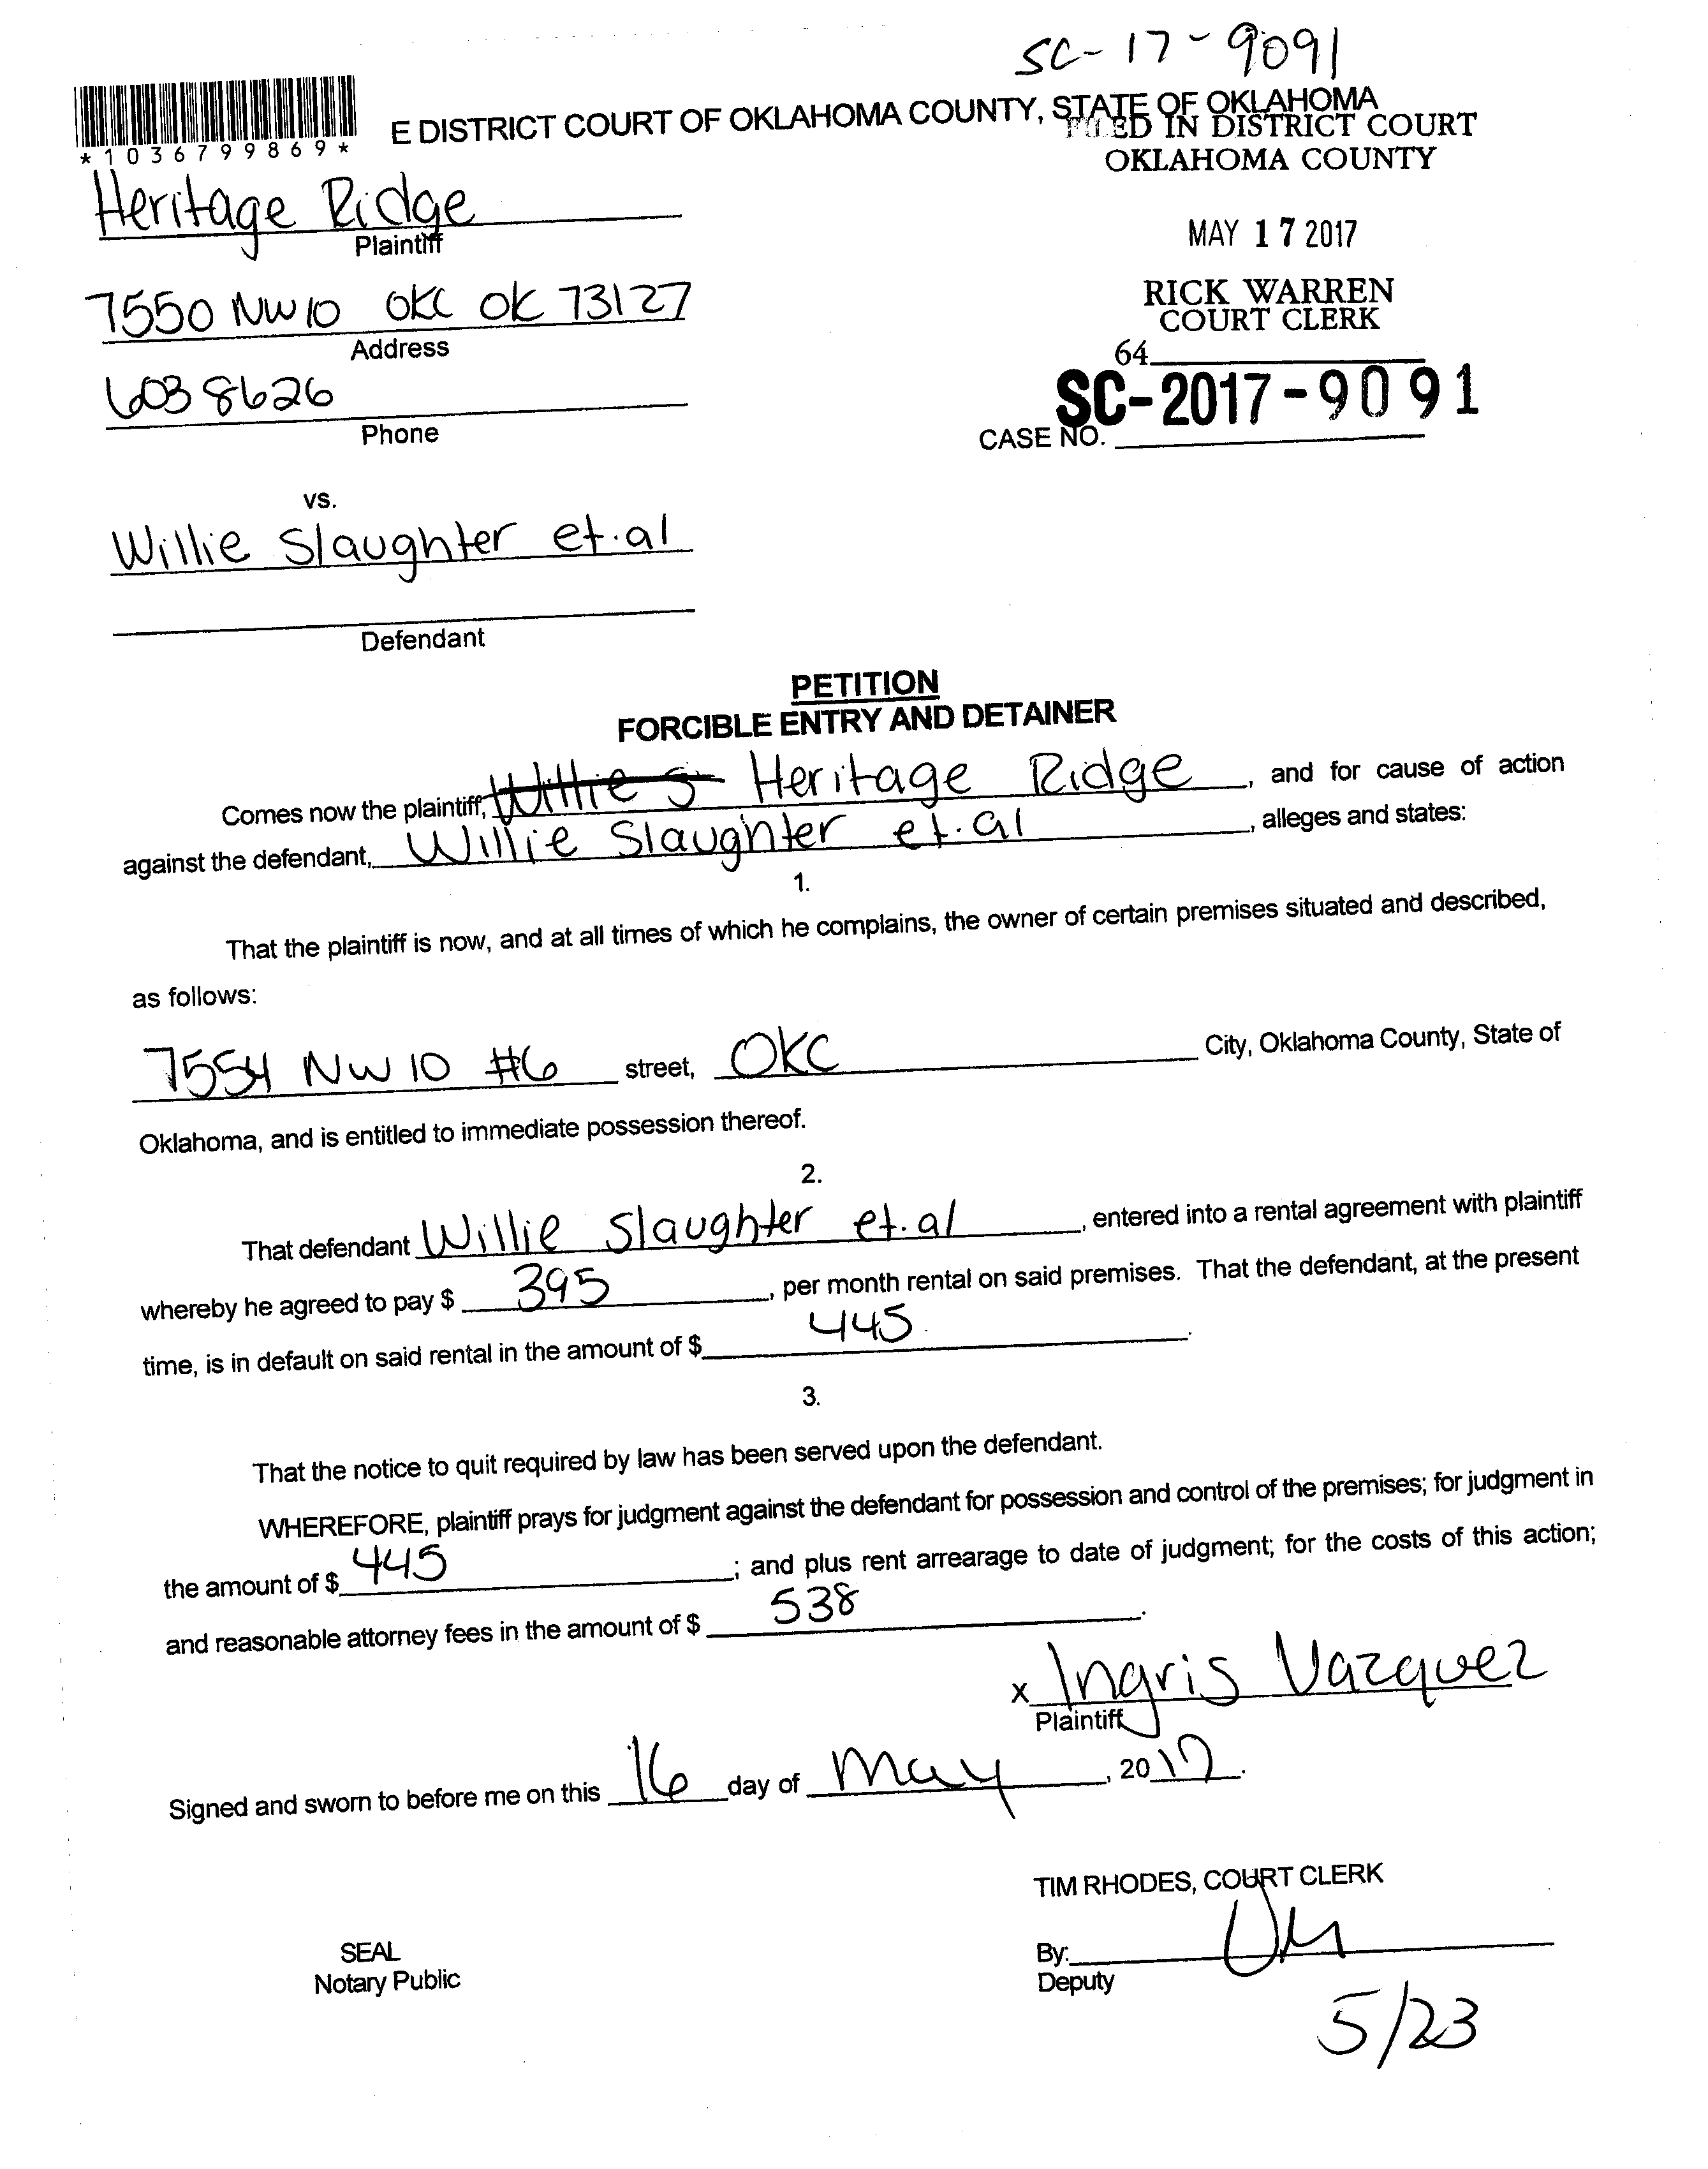 SC-17-9091
*1036799869*
E DISTRICT COURT OF OKLAHOMA COUNTY, STATE OF OKLAHOMA
FILED IN DISTRICT COURT
OKLAHOMA COUNTY
Heritage Ridge
Plaintiff
MAY 17 2017
7550 NW 10 OKC OK 73127
Address
RICK WARREN
COURT CLERK
64
603 8626
Phone
SC-2017-9091
CASE NO.
vs.
Willie Slaughter et.al
Defendant
PETITION
FORCIBLE ENTRY AND DETAINER
Comes now the plaintiff, Willie S Heritage Ridge, and for cause of action
against the defendant, Willie Slaughter et.al, alleges and states:
1.
That the plaintiff is now, and at all times of which he complains, the owner of certain premises situated and described,
as follows:
7554 NW 10 #6 street, OKC City, Oklahoma County, State of
Oklahoma, and is entitled to immediate possession thereof.
2.
That defendant Willie Slaughter et.al, entered into a rental agreement with plaintiff
whereby he agreed to pay $ 395, per month rental on said premises. That the defendant, at the present
time, is in default on said rental in the amount of $ 445.
3.
That the notice to quit required by law has been served upon the defendant.
WHEREFORE, plaintiff prays for judgment against the defendant for possession and control of the premises; for judgment in
the amount of $ 445; and plus rent arrearage to date of judgment; for the costs of this action;
and reasonable attorney fees in the amount of $ 538.
x Ingris Vazquez
Plaintiff
Signed and sworn to before me on this 16 day of May, 2017.
TIM RHODES, COURT CLERK
SEAL
Notary Public
By:
Deputy
5/23